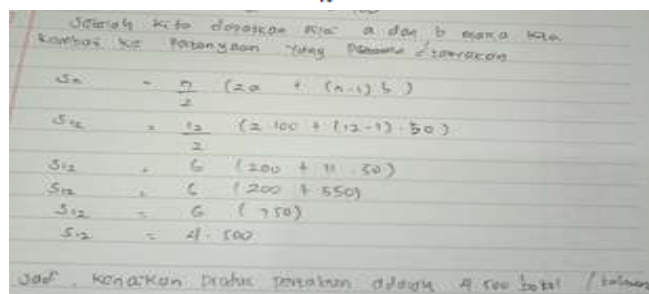 Setelah kita dapatkan nilai a dan b maka kita
kembali ke Pertanyaan yang ditanyakan
Sn = n/2 (2a + (n-1) b)
S12 = 12/2 (2.100 + (12-1) . 50)
S12 = 6 (200 + 11 . 50)
S12 = 6 (200 + 550)
S12 = 6 (750)
S12 = 4.500
Jadi, Kenaikan Pertahun adalah 4.500 botol /